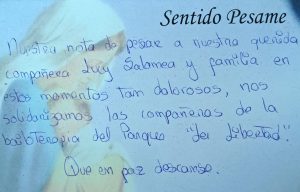 Sentido Pesame
Nuestra nota de pesar a nuestra querida
compañera Luz Salamea y familia en
estos momentos tan dolorosos, nos
solidarizamos las compañeras de la
bailoterapia del Parque "La Libertad".
Que en paz descanse.